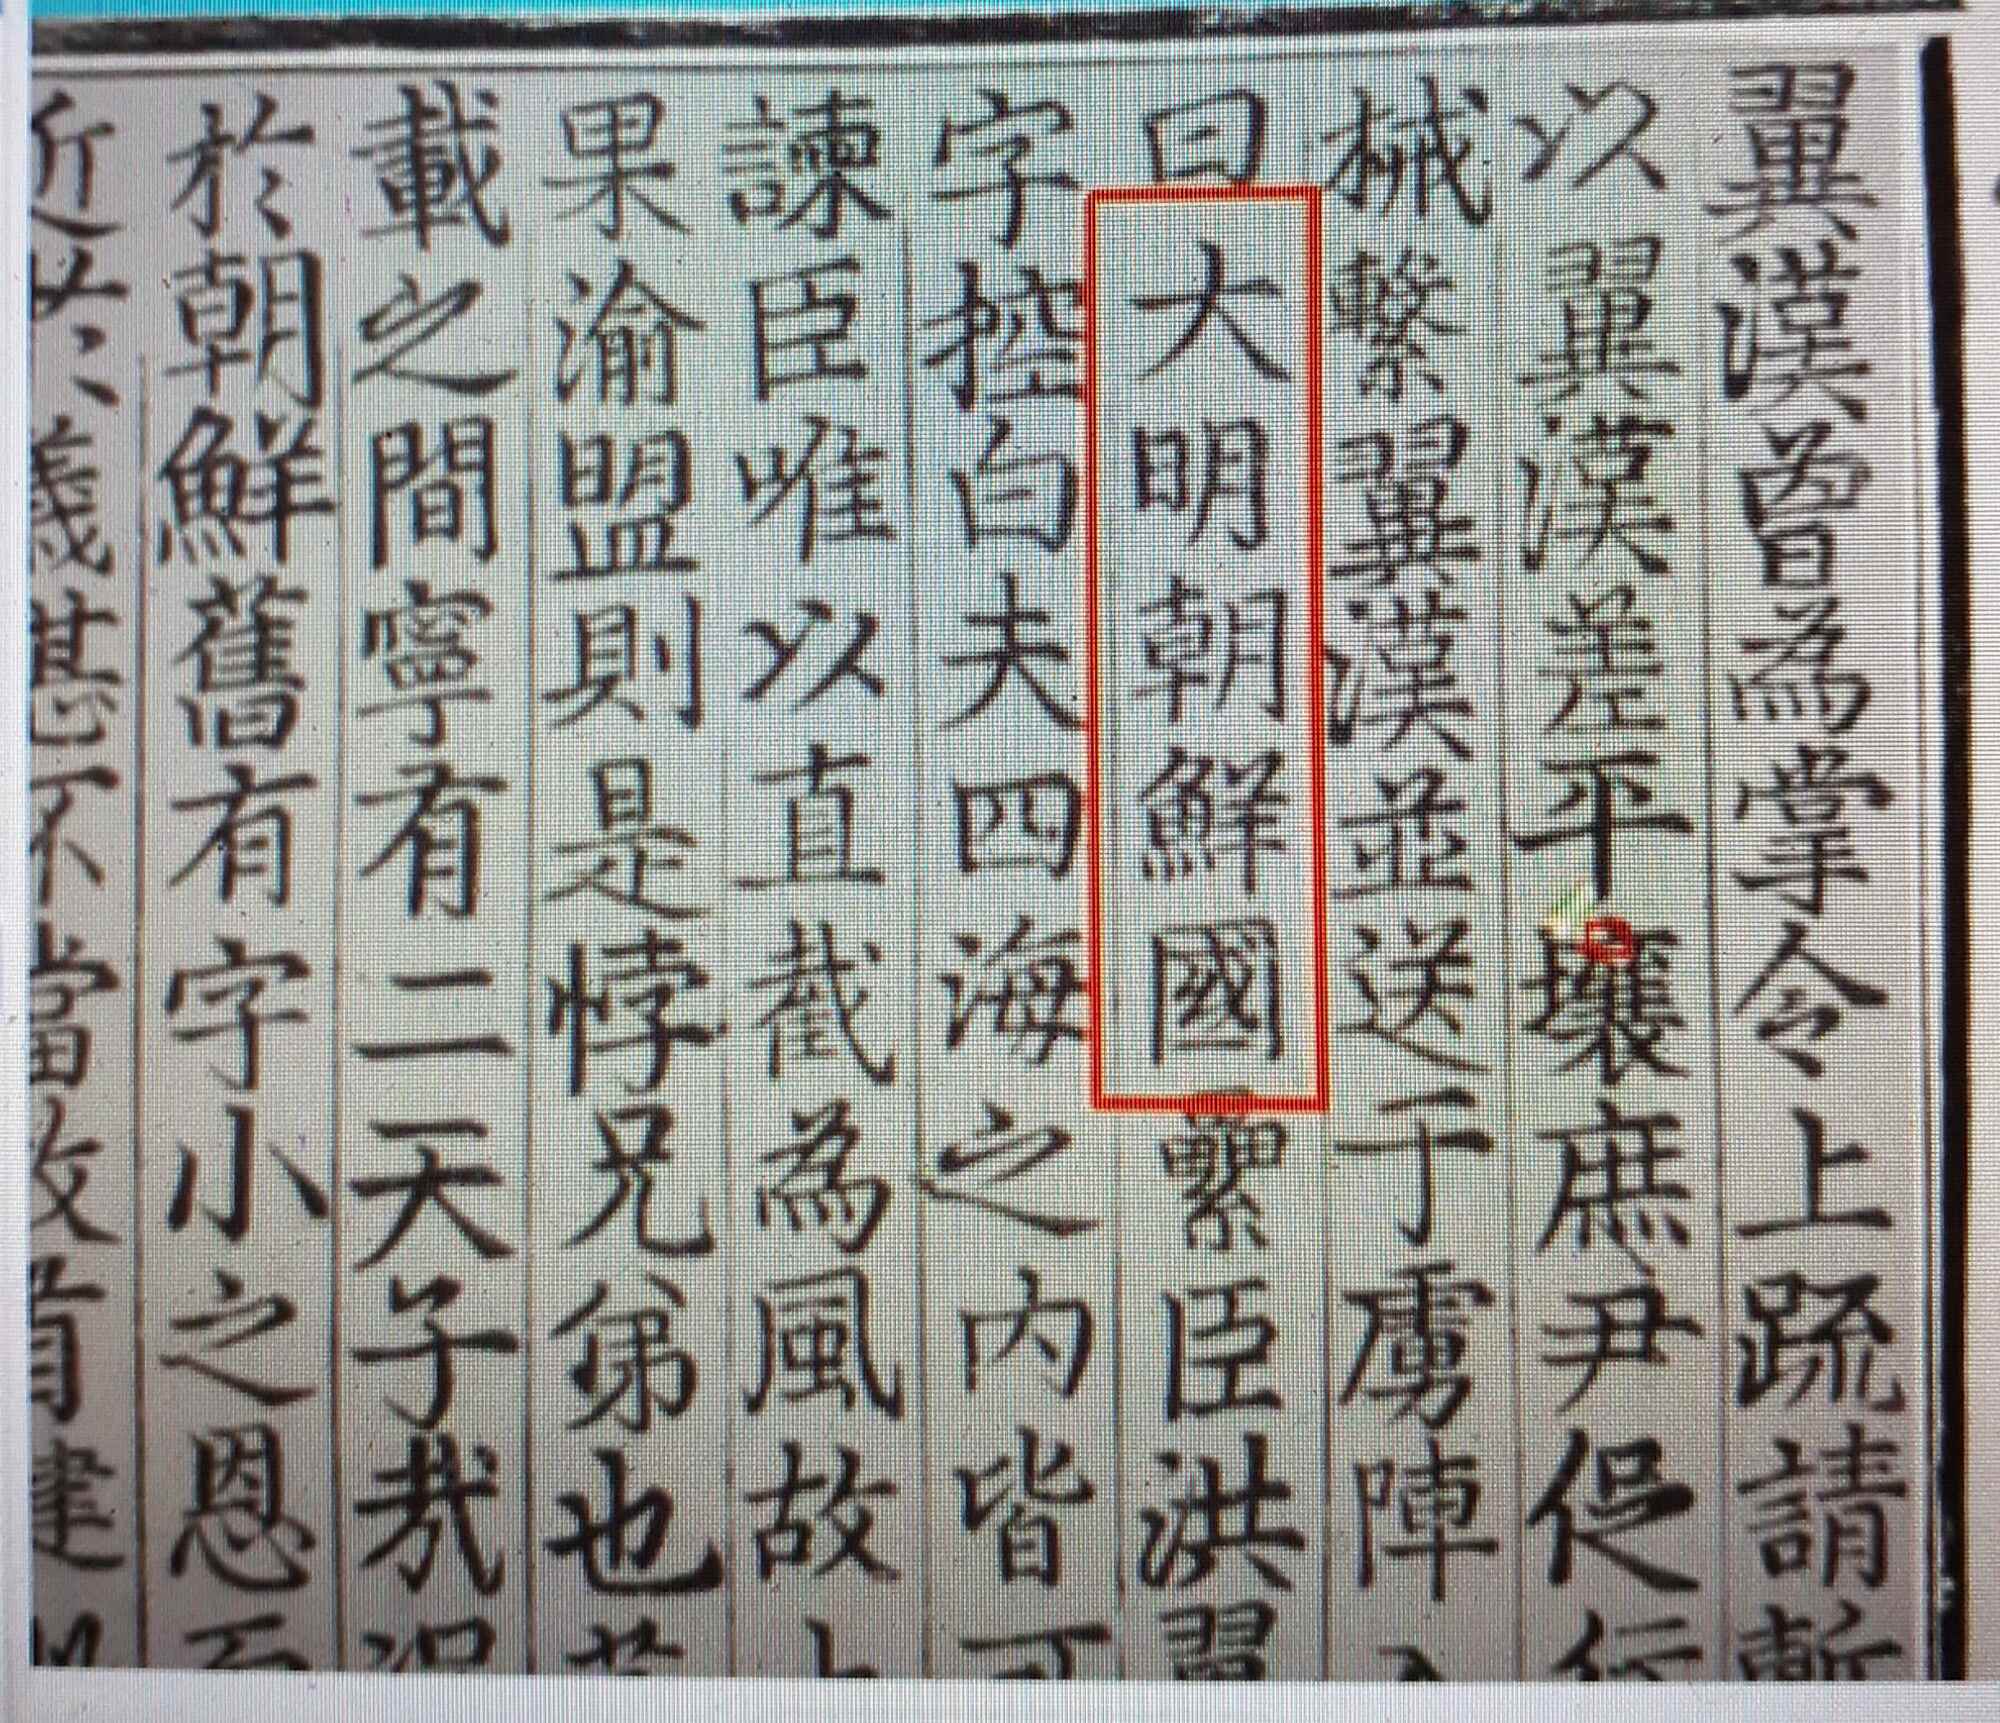 翼漢曾爲掌令上疏請斬
以翼漢差平壤庶尹促行
械繫翼漢並送于虜陣
曰大明朝鮮國纍臣洪翼
字控白夫四海之內皆可
諫臣唯以直截爲風故上
果渝盟則是悖兄弟也若
載之間寧有二天子哉況
於朝鮮舊有字小之恩
近於義甚不當故首建